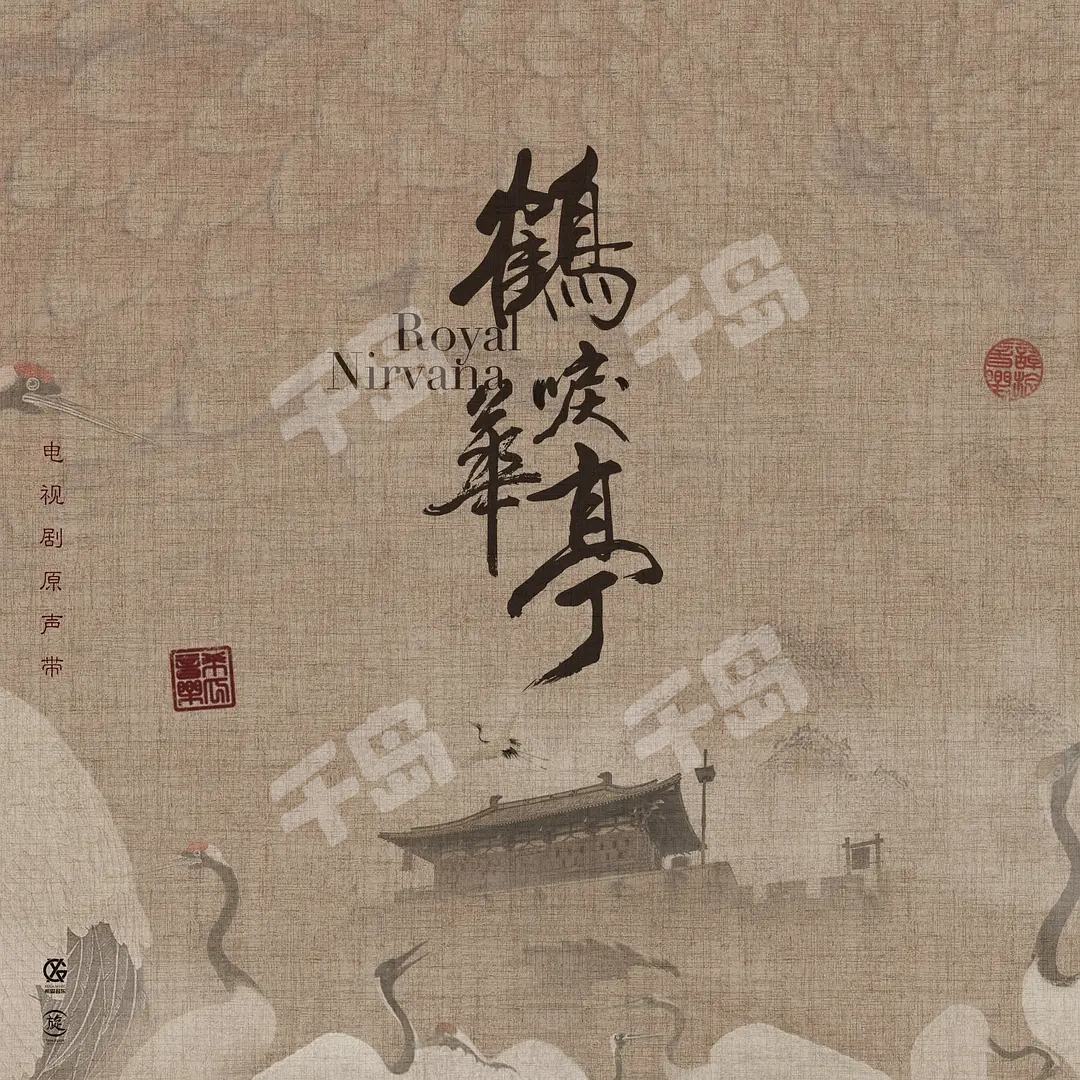 鶴唳
華亭
Royal
Nirvana
电视剧原声带
希瓜音樂
千岛
千岛
千岛
千岛
旋